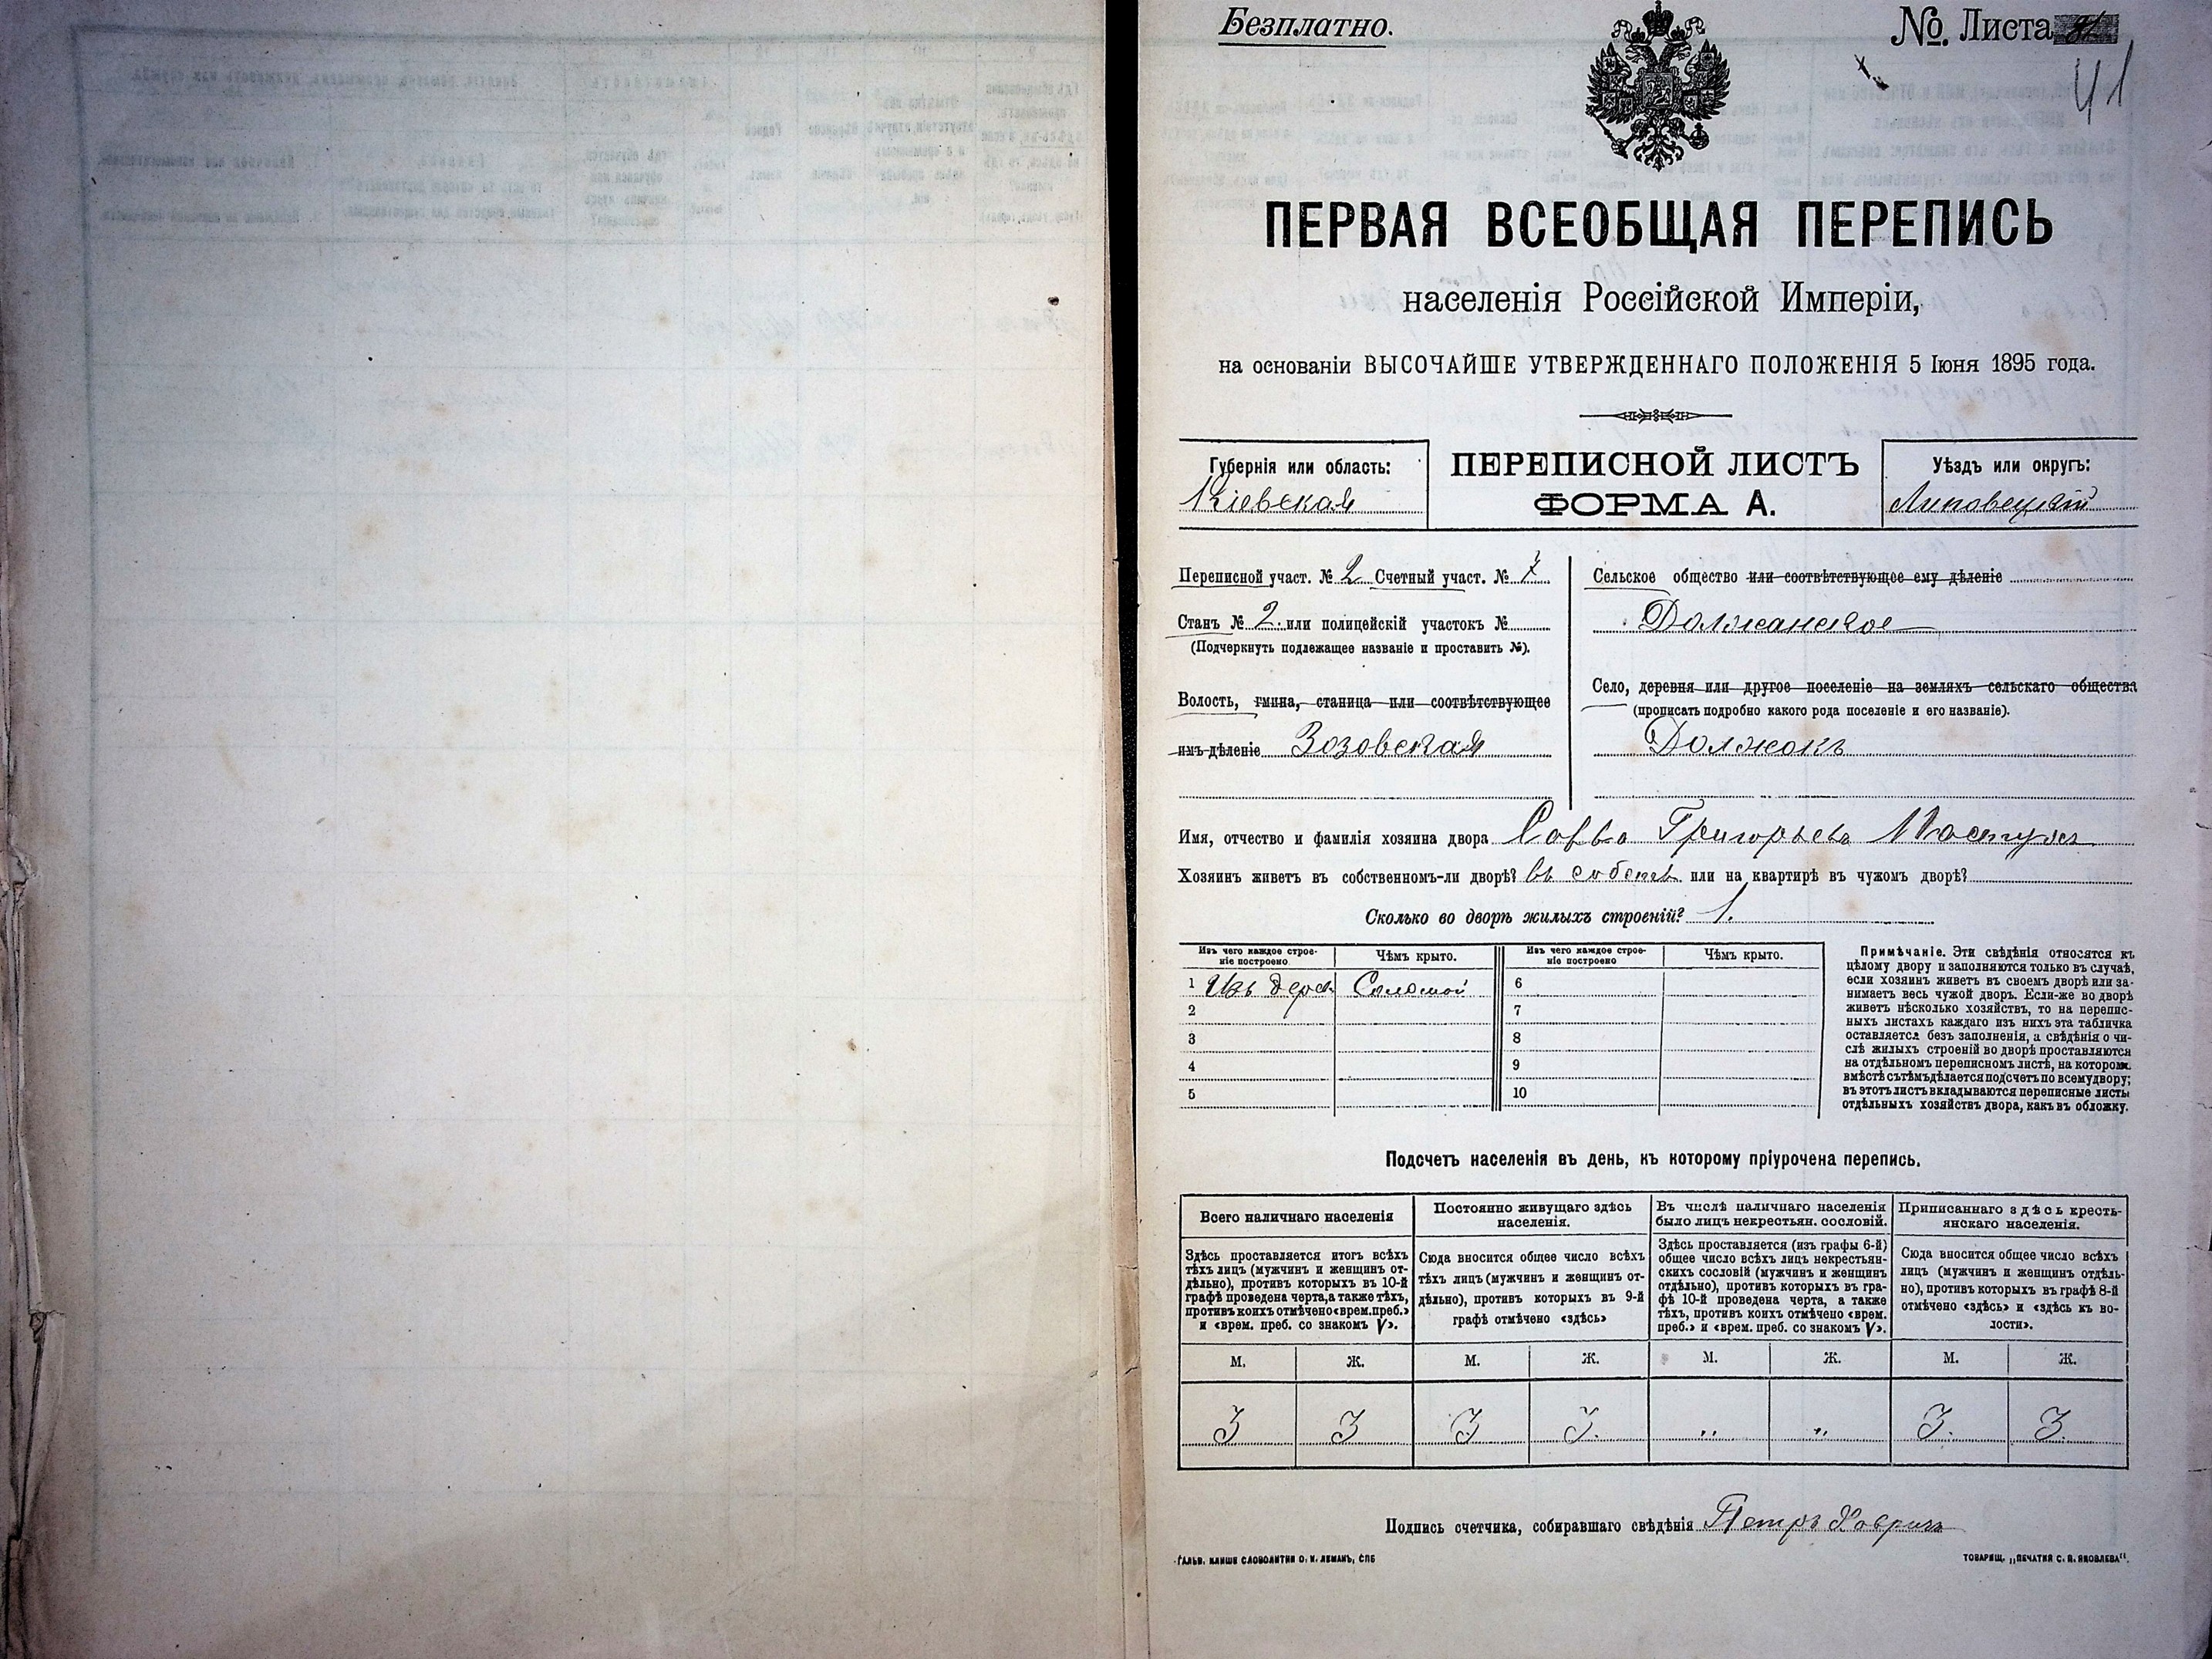 Безплатно.
№. Листа
41
ПЕРВАЯ ВСЕОБЩАЯ ПЕРЕПИСЬ
населенія Россійской Имперіи,
на основаніи ВЫСОЧАЙШЕ УТВЕРЖДЕННАГО ПОЛОЖЕНІЯ 5 Іюня 1895 года.
Губернія или область:
Кіевская
ПЕРЕПИСНОЙ ЛИСТЪ
ФОРМА А.
Уѣздъ или округъ:
Липовецкій
Переписной участ. № 2 Счетный участ. № 7
Станъ № 2. или полицейскій участокъ №
(Подчеркнуть подлежащее названіе и проставить №).
Волость, гмина, станица или соотвѣтствующее
имъ дѣленіе Зозовская
Сельское общество или соотвѣтствующее ему дѣленіе
Должанское
Село, деревня или другое поселеніе на земляхъ сельскаго общества
(прописать подробно какого рода поселеніе и его названіе).
Должокъ
Имя, отчество и фамилія хозяина двора Савва Григорьевъ
Хозяинъ живетъ въ собственномъ-ли дворѣ? въ собств. или на квартирѣ въ чужомъ дворѣ?
Сколько во дворѣ жилыхъ строеній? 1.
Изъ чего каждое строе-
ніе построено
Чѣмъ крыто.
Изъ чего каждое строе-
ніе построено
Чѣмъ крыто.
1 Изъ дерев. Соломой 6
2 7
3 8
4 9
5 10
Примѣчаніе. Эти свѣдѣнія относятся къ
цѣлому двору и заполняются только въ случаѣ,
если хозяинъ живетъ въ своемъ дворѣ или за-
нимаетъ весь чужой дворъ. Если-же во дворѣ
живетъ нѣсколько хозяйствъ, то на перепис-
ныхъ листахъ каждаго изъ нихъ эта табличка
оставляется безъ заполненія, а свѣдѣнія о чи-
слѣ жилыхъ строеній во дворѣ проставляются
на отдѣльномъ переписномъ листѣ, на которомъ
вмѣстѣ съ тѣмъ дѣлается подсчетъ по всему двору;
въ этотъ листъ вкладываются переписные листы
отдѣльныхъ хозяйствъ двора, какъ въ обложку.
Подсчетъ населенія въ день, къ которому пріурочена перепись.
Всего наличнаго населенія
Постоянно живущаго здѣсь
населенія.
Въ числѣ наличнаго населенія
было лицъ некрестьян. сословій.
Приписаннаго здѣсь кресть-
янскаго населенія.
Здѣсь проставляется итогъ всѣхъ
тѣхъ лицъ (мужчинъ и женщинъ от-
дѣльно), противъ которыхъ въ 10-й
графѣ проведена черта, а также тѣхъ,
противъ коихъ отмѣчено «врем. преб.»
и «врем. преб. со знакомъ V».
Сюда вносится общее число всѣхъ
тѣхъ лицъ (мужчинъ и женщинъ от-
дѣльно), противъ которыхъ въ 9-й
графѣ отмѣчено «здѣсь»
Здѣсь проставляется (изъ графы 6-й)
общее число всѣхъ лицъ некрестьян-
скихъ сословій (мужчинъ и женщинъ
отдѣльно), противъ которыхъ въ гра-
фѣ 10-й проведена черта, а также
тѣхъ, противъ коихъ отмѣчено «врем.
преб.» и «врем. преб. со знакомъ V».
Сюда вносится общее число всѣхъ
лицъ (мужчинъ и женщинъ отдѣль-
но), противъ которыхъ въ графѣ 8-й
отмѣчено «здѣсь» и «здѣсь къ во-
лости».
М. Ж. М. Ж. М. Ж. М. Ж.
3 3 3 3. „ „ 3. 3.
Подпись счетчика, собиравшаго свѣдѣнія Петръ
ГАЛЬВ. КЛИШЕ СЛОВОЛИТНИ О. И. ЛЕМАНЪ, СПБ
ТОВАРИЩ. „ПЕЧАТНЯ С. П. ЯКОВЛЕВА“.